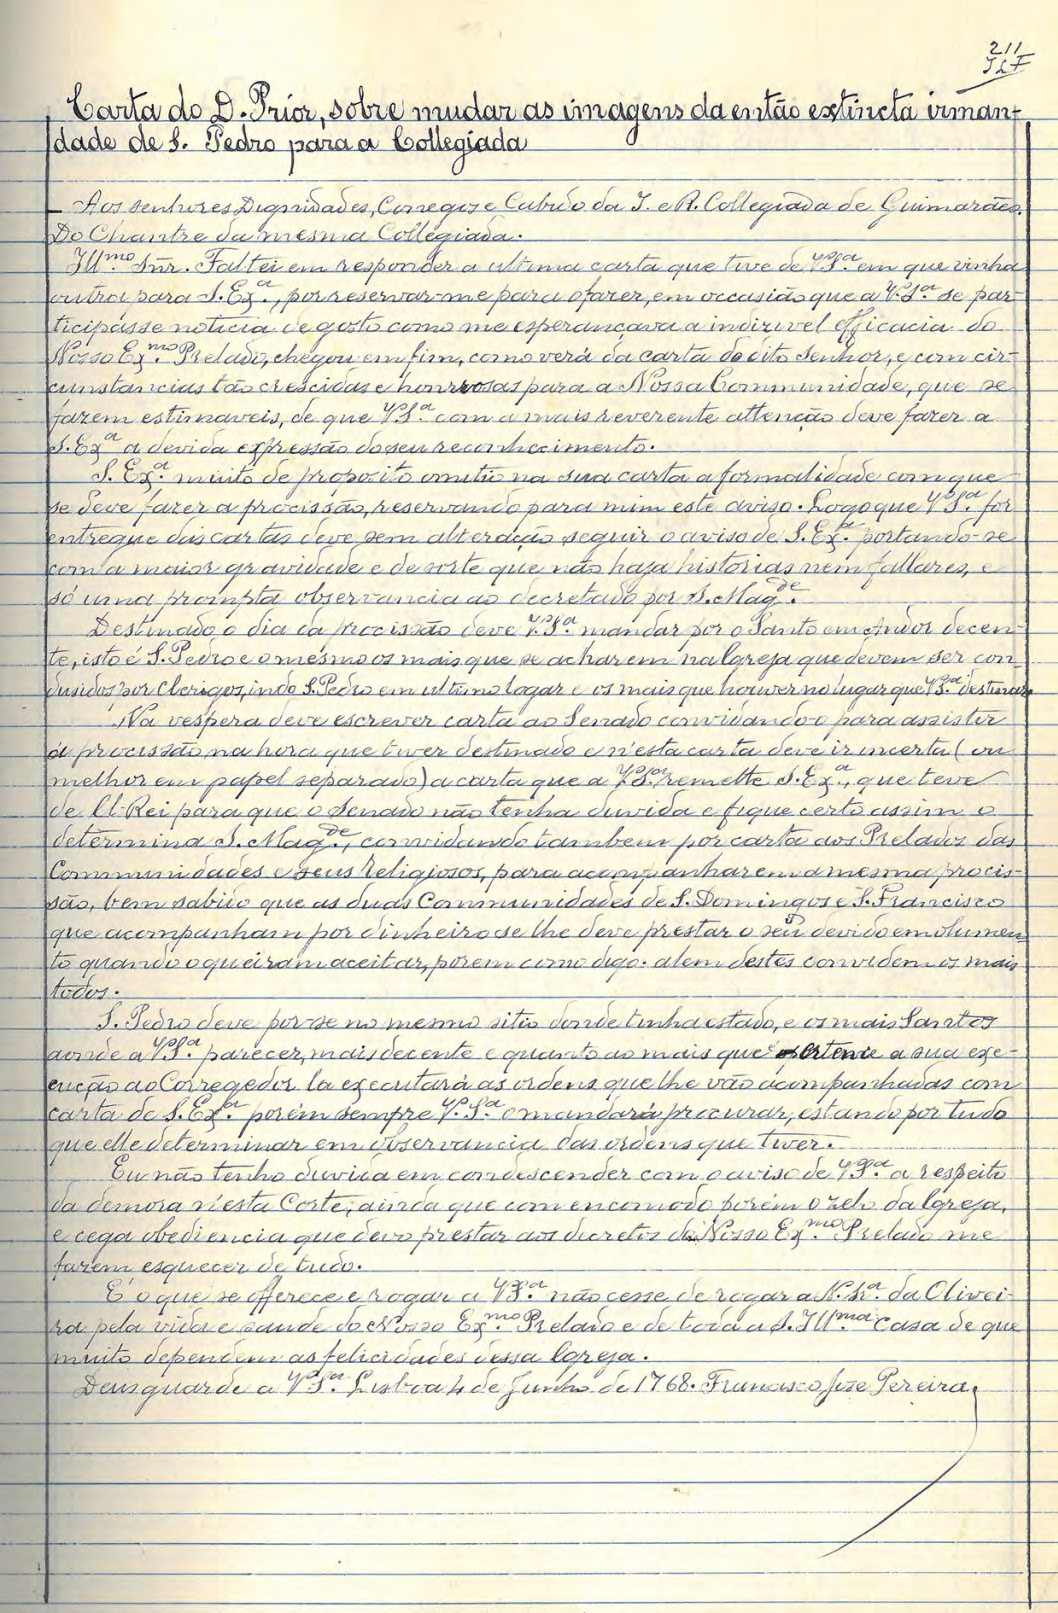 211
Carta do D. Prior, sobre mudar as imagens da então extincta irman-
dade de S. Pedro para a Collegiada
Aos senhores Dignidades, Conegos e Cabido da I. e R. Collegiada de Guimarães.
Do Chantre da mesma Collegiada.
Ill.mo Snr. Faltei em responder a ultima carta que tive de V.S.a em que vinha
outra para S. Ex.a, por reservar-me para o fazer, em occasião que a V.S.a se par-
ticipásse noticia de gosto como me esperançava a indizivel efficacia do
Nosso Ex.mo Prelado, chegou em fim, como verá da carta do dito senhor, e com cir-
cunstancias tão crescidas e honrosas para a Nossa Communidade, que se
fazem estimaveis, de que V.S.a com a mais reverente attenção deve fazer a
S. Ex.a a devida expressão do seu reconhecimento.
S. Ex.a muito de proposito omitio na sua carta a formalidade com que
se deve fazer a procissão, reservando para mim este aviso. Logo que V.S.a for
entregue das cartas deve sem alteração seguir o aviso de S. Ex.a portando-se
com a maior gravidade e de sorte que não haja histórias nem fallares, e
só uma prompta observancia ao decretado por S. Mag.de
Destinado o dia da procissão deve V.S.a mandar por o Santo em Andor decen-
te, isto é S. Pedro e o mesmo os mais que se acharem na Igreja que devem ser con-
dusidos por Clerigos, indo S. Pedro em ultimo logar e os mais que houver no lugar que V.S.a destinar.
Na vespera deve escrever carta ao Senado convidando-o para assistir
á procissão na hora que tiver destinado e n'esta carta deve ir incerta (ou
melhor em papel separado) a carta que a V.S.a remette S. Ex.a, que teve
de El-Rei para que o Senado não tenha duvida e fique certo assim o
determina S. Mag.de, convidando tambem por carta aos Prelados das
Communidades e seus Religiosos, para acompanharem a mesma procis-
são, bem sabido que as duas Communidades de S. Domingos e S. Francisco
que acompanham por dinheiro se lhe deve prestar o seu devido emolumen-
to quando o queiram aceitar, porem como digo. alem destes convidem os mais
todos.
S. Pedro deve por-se no mesmo sitio donde tinha estado, e os mais Santos
aonde a V.S.a parecer, mais decente e quanto ao mais que pertence a sua exe-
cução ao Corregedor la executará as ordens que lhe vão acompanhadas com
carta de S. Ex.a porém sempre V.S.a o mandará procurar, estando por tudo
que elle determinar em observancia das ordens que tiver.
Eu não tenho duvida em condescender com o aviso de V.S.a a respeito
da demora n'esta Corte, ainda que com encomodo porém o zelo da Igreja,
e cega obediencia que devo prestar aos decretos do Nosso Ex.mo Prelado me
fazem esquecer de tudo.
E' o que se offerece e rogar a V.S.a não cesse de rogar a N. Sr.a da Olivei-
ra pela vida e saude do Nosso Ex.mo Prelado e de toda a S. Ill.ma Casa de que
muito dependem as felicidades dessa Igreja.
Deus guarde a V.S.a Lisboa 4 de Junho de 1768. Francisco Jose Pereira.